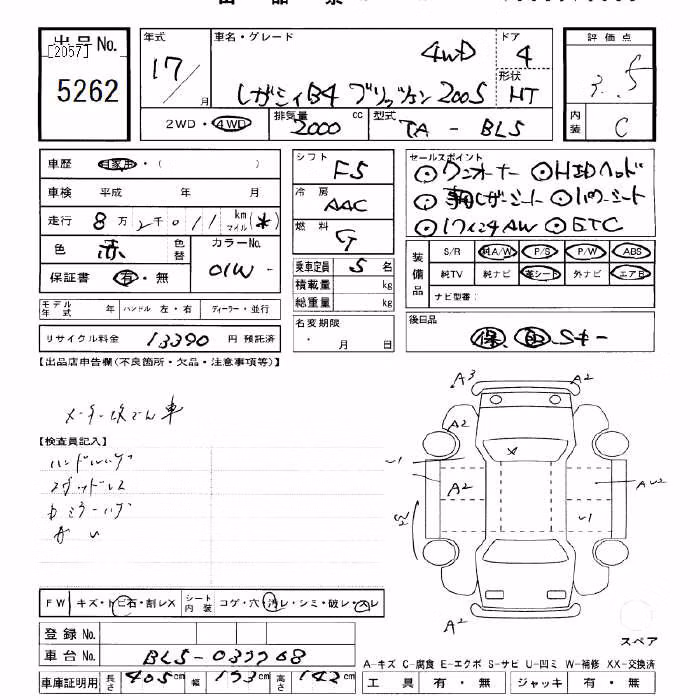 出品No. 年式 車名・グレード 4WD ドア 4 評価点
[2057]
5262 17/ 月 レガシィB4 ブリッツェン2005 形状 HT 3.5
2WD・4WD 排気量 2000 cc 型式 TA-BL5 内装 C
車歴 自家用・( ) シフト F5 セールスポイント
ワンオーナー HIDヘッド
車検 平成 年 月 冷房 AAC
本革レザーシート パワーシート
走行 8万2千011 km マイル (*) 燃料 G
17インチAW ETC
色 赤 色替 カラーNo. 01W- 乗車定員 5名 装備品 S/R 純A/W P/S P/W ABS
保証書 有・無 積載量 kg 純TV 純ナビ 革シート 外ナビ エアB
モデル年式 年 ハンドル 左・右 ディーラー・並行 総重量 kg ナビ型番:
リサイクル料金 13390 円 預託済 名変期限 ・ 月 日 後日品
保 取 Sキー
【出品店申告欄(不良箇所・欠品・注意事項等)】
メーター改ざん車
【検査員記入】
A3 A2
A2
A2
A2
FW キズ・トビ石・割レX シート内装 コゲ・穴・汚レ・シミ・破レ・スレ
登録No.
スペア
車台No. BL5-
A-キズ C-腐食 E-エクボ S-サビ U-凹ミ W-補修 XX-交換済
車庫証明用 長さ cm 幅 cm 高さ cm 工具 有・無 ジャッキ 有・無